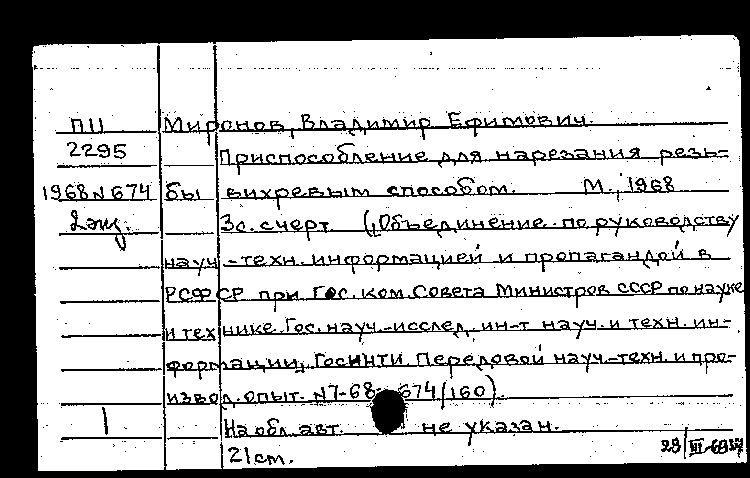 ПЦ Миронов, Владимир Ефимович.
2295 Приспособление для нарезания резь-
1968 N 674 бы вихревым способом. М., 1968
2 экз. 3 с. с черт. („Объединение по руководству
науч.-техн. информацией и пропагандой в
РСФСР при Гос. ком. Совета Министров СССР по науке
и технике. Гос. науч.-исслед. ин-т науч. и техн. ин-
формации, Госинти. Передовой науч.-техн. и про-
извод. опыт. N 7-68- 674/160).
1 На обл. авт. не указан.
21 см. 29/VII-69